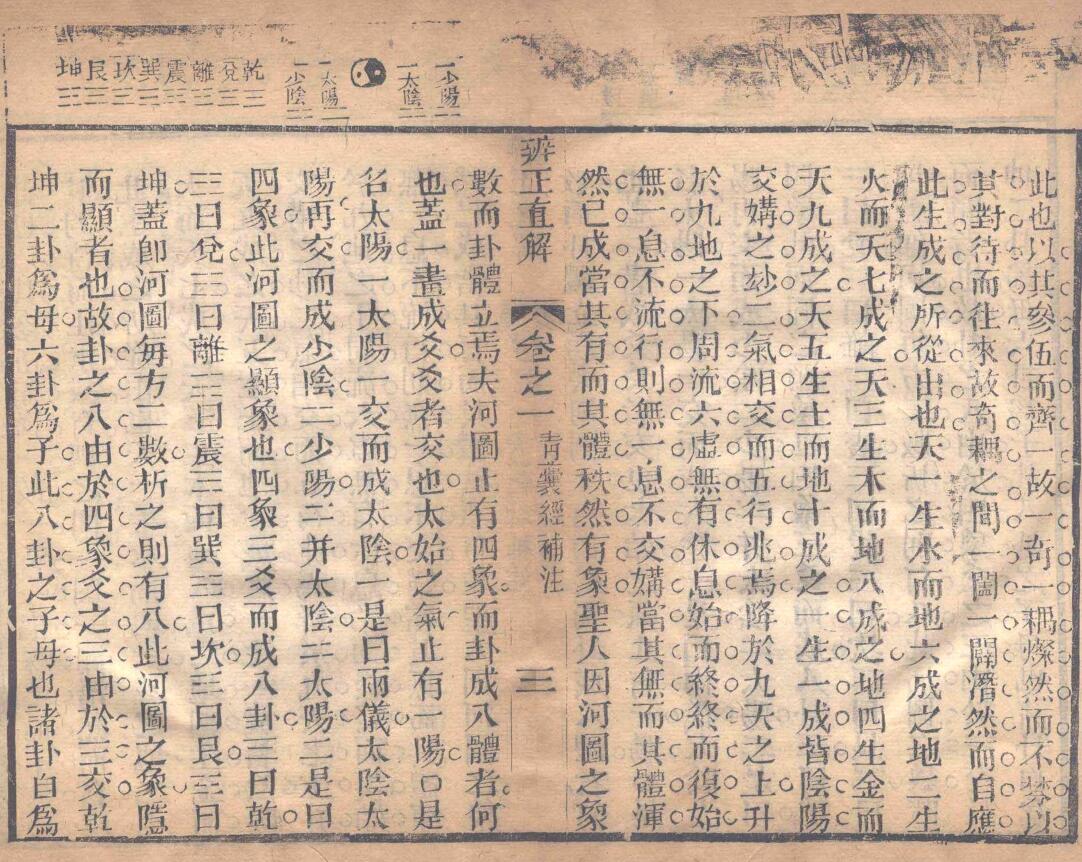 此也以其參伍而齊一故一奇一耦燦然而不棼以
其對待而往來故奇耦之間一闔一闢潛然而自應
此生成之所從出也天一生水而地六成之地二生
火而天七成之天三生木而地八成之地四生金而
天九成之天五生土而地十成之一生一成皆陰陽
交媾之玅二氣相交而五行兆焉降於九天之上升
於九地之下周流六虛無有休息始而終終而復始
無一息不流行則無一息不交媾當其無而其體渾
然已成當其有而其體秩然有象聖人因河圖之象
辨正直解 卷之一 青囊經補注 三
數而卦體立焉夫河圖止有四象而卦成八體者何
也蓋一畫成爻爻者交也太始之氣止有一陽○是
名太陽一太陽一交而成太陰一是曰兩儀太陰太
陽再交而成少陰二少陽二并太陰二太陽二是曰
四象此河圖之顯象也四象三爻而成八卦☰曰乾
☱曰兌☲曰離☳曰震☴曰巽☵曰坎☶曰艮☷曰
坤蓋卽河圖每方二數析之則有八此河圖之象隱
而顯者也故卦之八由於四象爻之三由於三交乾
坤二卦爲母六卦爲子此八卦之子母也諸卦自爲
少陽
太陰
太陽
少陰
乾☰
兌☱
離☲
震☳
巽☴
坎☵
艮☶
坤☷